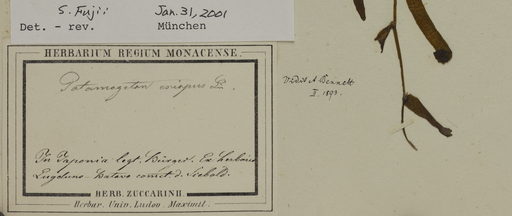 S. Fujii Jan. 31, 2001
Det. - rev. München
HERBARIUM REGIUM MONACENSE.
Potamogeton crispus L.
In Japonia legt. Bürger. Ex herbario
Lugduno-Batavo comct. d. Siebold.
HERB. ZUCCARINII.
Herbar. Univ. Ludov. Maximil.
Vidit A. Bennett
X. 1893.